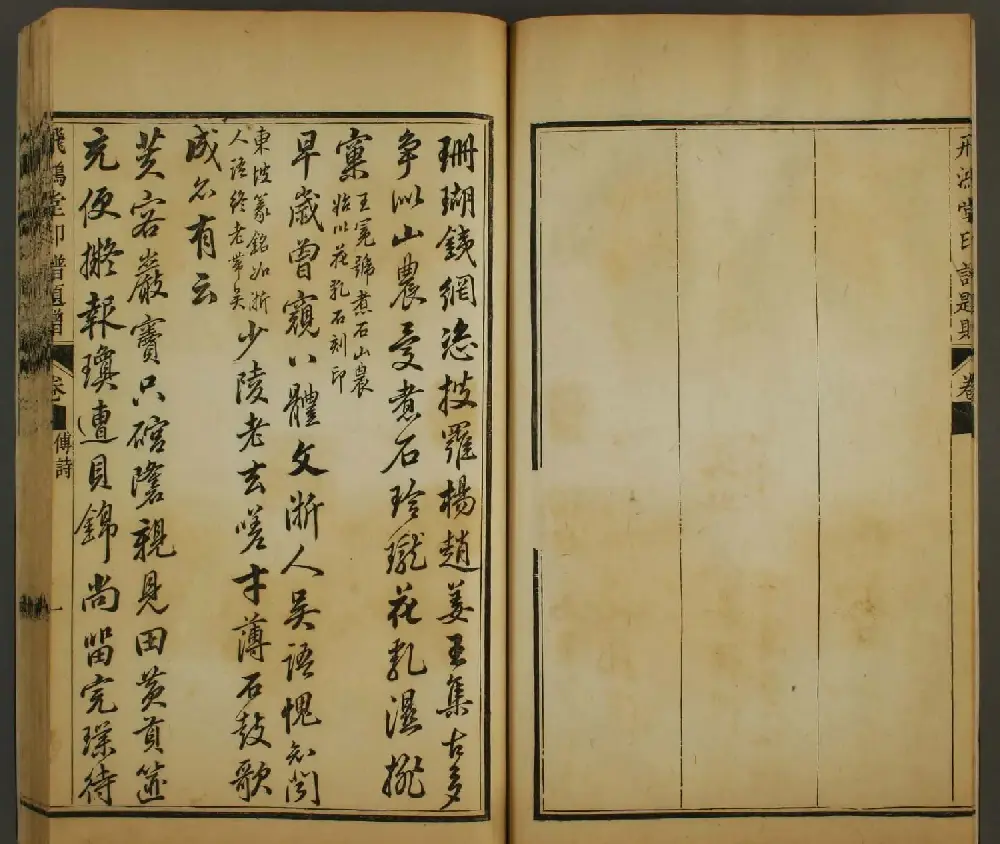 飛鴻堂印譜題贈
卷
珊瑚銕網恣披羅楊趙姜王集古多
爭似山農受煮石玲瓏花乳濕
窠
王冕號煮石山農
始以花乳石刻印
早歲曾窺八體文浙人吳語愧知聞
東坡篆銘如浙
人語終老帶吳
少陵老去嗟才薄石鼓歌
成有云
芙容巖竇只礱親見田黃貢篚
充便擬報瓊遭貝錦尚留完璞待
飛鴻堂印譜題贈
卷
傅詩
一